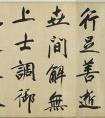 行足善逝
世間解無
上士調御